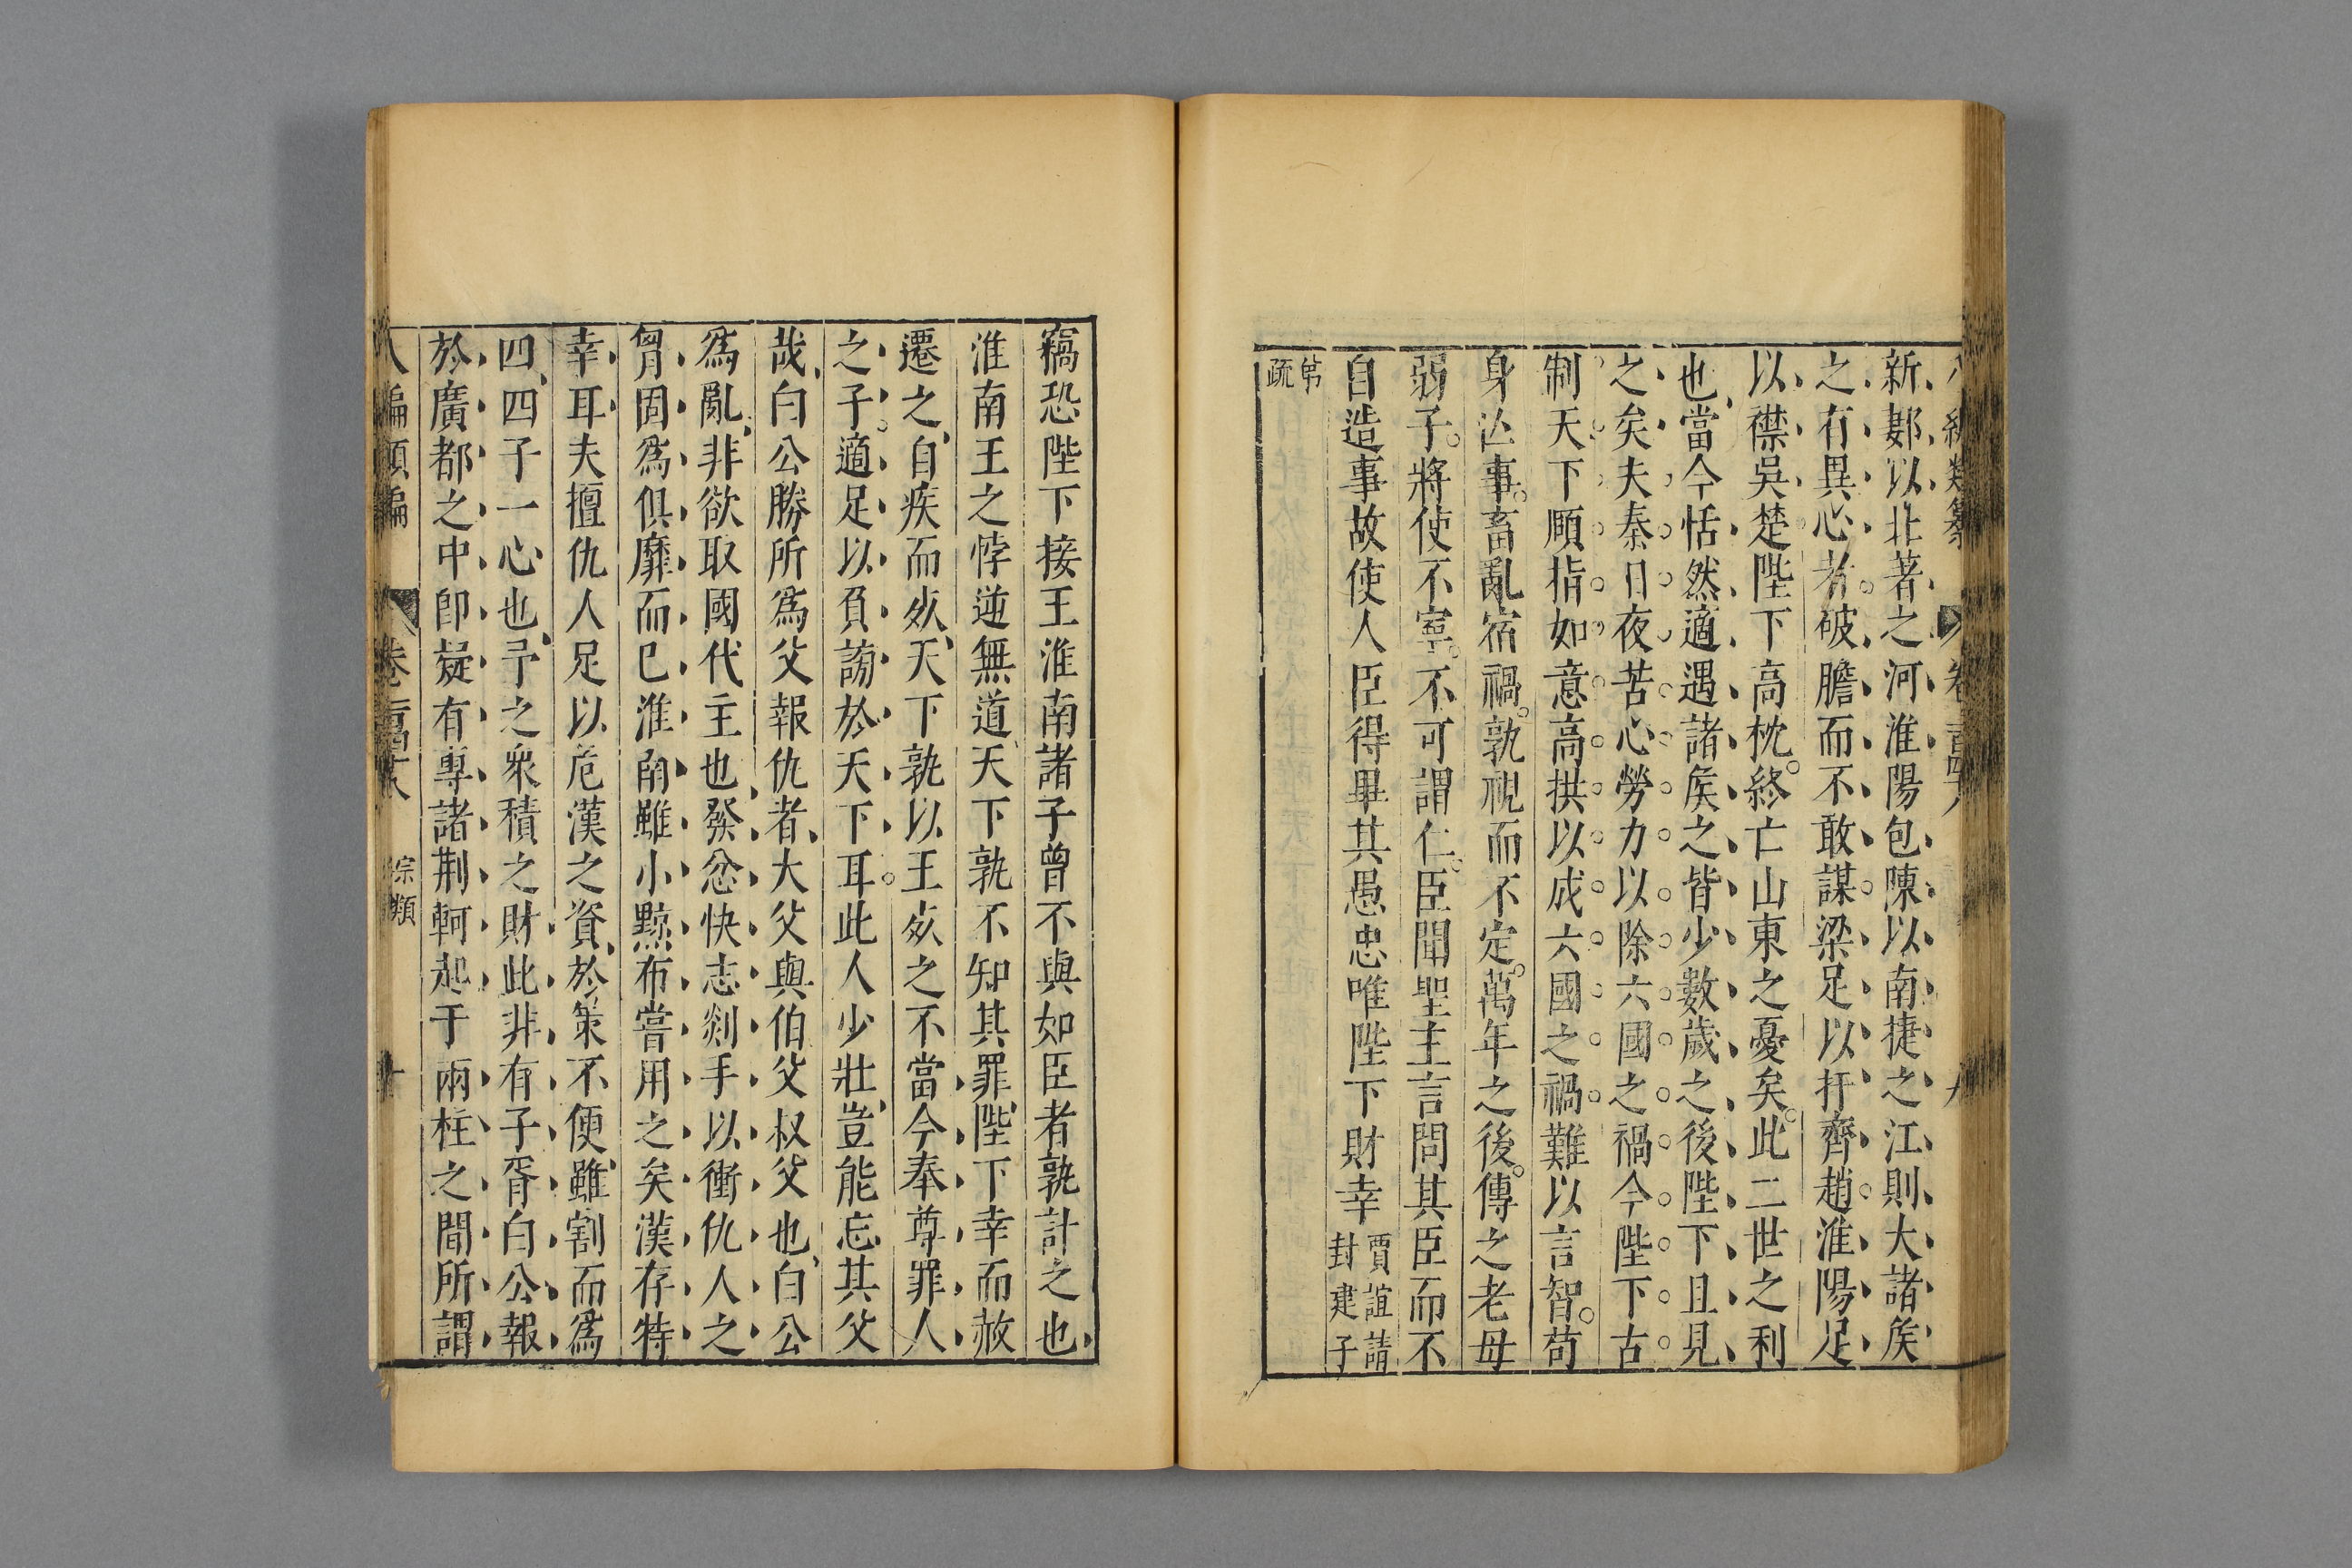 新郪以北著之河淮陽包陳以南揵之江則大諸矦
之有異心者破膽而不敢謀梁足以扞齊趙淮陽足
以襟吳楚陛下高枕終亡山東之憂矣此二世之利
也當今恬然適遇諸矦之皆少數歲之後陛下且見
之矣夫秦日夜苦心勞力以除六國之禍今陛下古
制天下頤指如意高拱以成六國之禍難以言智苟
身亾事畜亂宿禍孰視而不定萬年之後傳之老母
弱子將使不寧不可謂仁臣聞聖主言問其臣而不
自造事故使人臣得畢其愚忠唯陛下財幸賈誼請
封建子
弟
疏
竊恐陛下接王淮南諸子曾不與如臣者孰計之也
淮南王之悖逆無道天下孰不知其罪陛下幸而赦
遷之自疾而𣦸天下孰以王𣦸之不當今奉尊罪人
之子適足以負謗於天下耳此人少壯豈能忘其父
哉白公勝所爲父報仇者大父與伯父叔父也白公
爲亂非欲取國代主也發忿快志剡手以衝仇人之
胷固爲俱靡而已淮南雖小黥布嘗用之矣漢存特
幸耳夫擅仇人足以危漢之資於策不便雖割而爲
四四子一心也予之衆積之財此非有子胥白公報
於廣都之中卽疑有專諸荆軻起于兩柱之間所謂